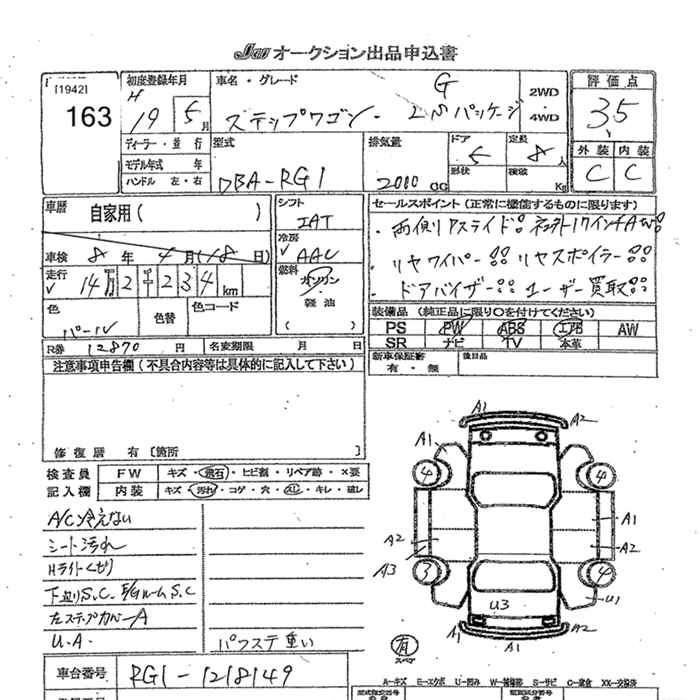 JU オークション出品申込書
[1942]
163
初度登録年月
H 19 5月
車名・グレード
G
ステップワゴン・ 2WD
4WD
評価点
3.5
外装 内装
C C
ディーラー・並行
モデル年式 年
ハンドル 左・右
型式
DBA-RG1
排気量
2000 CC
ドア
5
形状
定員
8人
積載
Kg
車歴 自家用( )
車検 8年 4月(18日)
走行 14万2千234km
色
パール
色替
色コード
シフト
IAT
冷房
AAC
燃料
ガソリン
軽油
( )
セールスポイント(正常に機能するものに限ります)
・両側Pスライド!! 17インチAW!!
・リヤワイパー!! リヤスポイラー!!
・ドアバイザー!! ユーザー買取!!
装備品(純正品に限り○を付けてください)
PS PW ABS エアB AW
SR ナビ TV 本革
新車保証書
有・無
後日品
R券 12870円
名変期限 月 日
注意事項申告欄(不具合内容等は具体的に記入して下さい)
修復歴 有〔箇所 〕
検査員
記入欄
FW キズ・飛石・ヒビ割・リペア跡・×要
内装 キズ・汚れ・コゲ・穴・スレ・キレ・破レ
A/C冷えない
シート汚れ
Hライトくもり
下廻りS.C. E/GルームS.C
左ステップカバーA
U.A.
パワステ重い
A1
A2
A1
4
4
A1
A2
A2
A3
3
4
U3
U1
A1
A1
A2
有
スペア
車台番号 RG1-1218149
A-キズ E-エクボ U-凹み W-補修跡 S-サビ C-腐食 XX-交換済